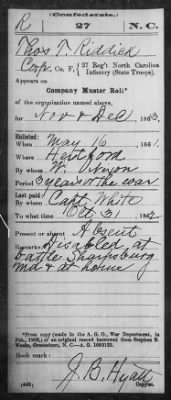 (Confederate.)
R 27 N.C.
Thos T. Riddick
Corp., Co. F, 27 Reg't North Carolina
Infantry (State Troops)
Appears on
Company Muster Roll*
of the organization named above,
for Nov & Dec, 1863.
Enlisted:
When May 16, 1861.
Where Hertford
By whom W.
Period 3 years or the war
Last paid:
By whom Capt. White
To what time Oct 31, 1862.
Present or absent Absent
Remarks: Disabled at
battle Sharpsburg
Md & at home
*From copy (made in the A. G. O., War Department, in
Feb., of an original record borrowed from Stephen B.
Weeks, Greensboro, N. C.—A. G.
Book mark:
J. B. Hyatt
Copyist.